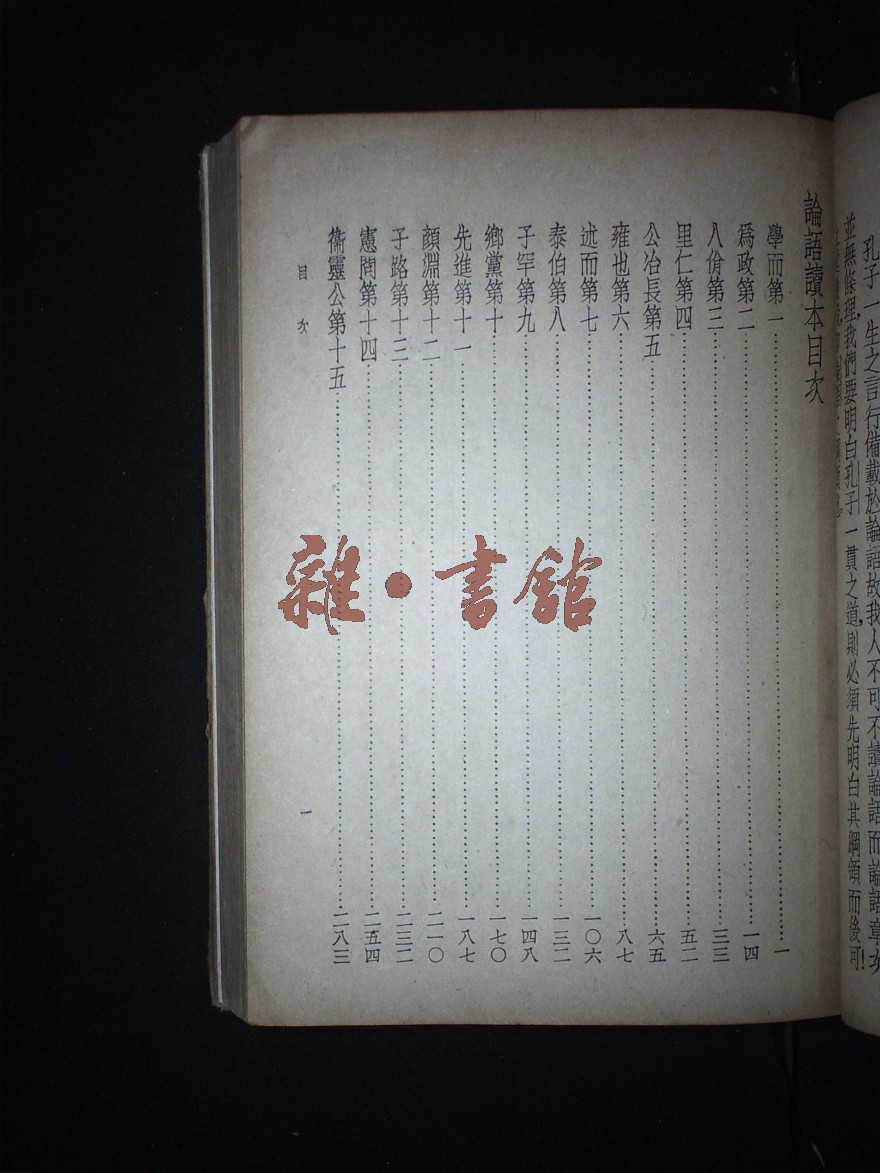 孔子一生之言行備載於論語故我人不可不讀論語而論語章次
並無條理,我們要明白孔子一貫之道,則必須先明白其綱領而後可!
論語讀本目次
學而第一……一
爲政第二……一四
八佾第三……三三
里仁第四……五二
公冶長第五……六五
雍也第六……八七
述而第七……一〇六
泰伯第八……一三二
子罕第九……一四八
鄉黨第十……一七〇
先進第十一……一八七
顏淵第十二……二一〇
子路第十三……二三二
憲問第十四……二五四
衞靈公第十五……二八三
目次
一
雜·書館